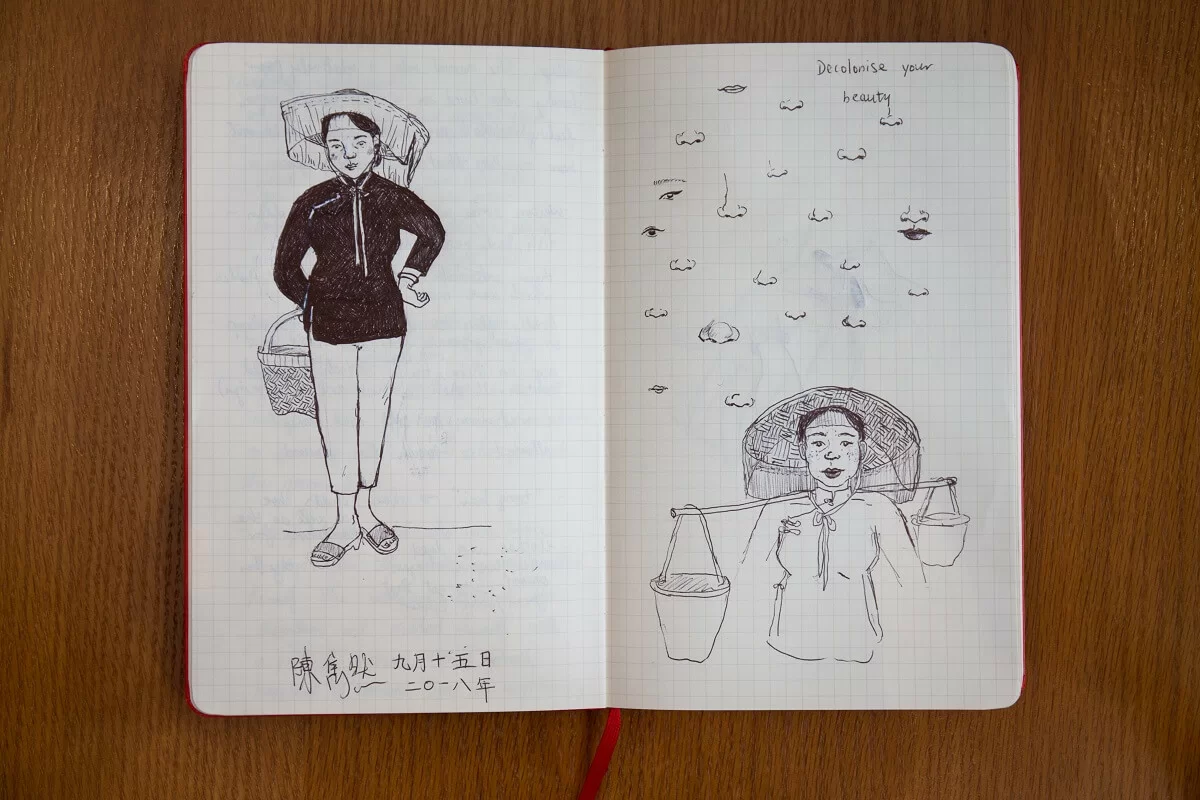 陳雋然 九月十五日
二〇一八年
Decolonise your
beauty